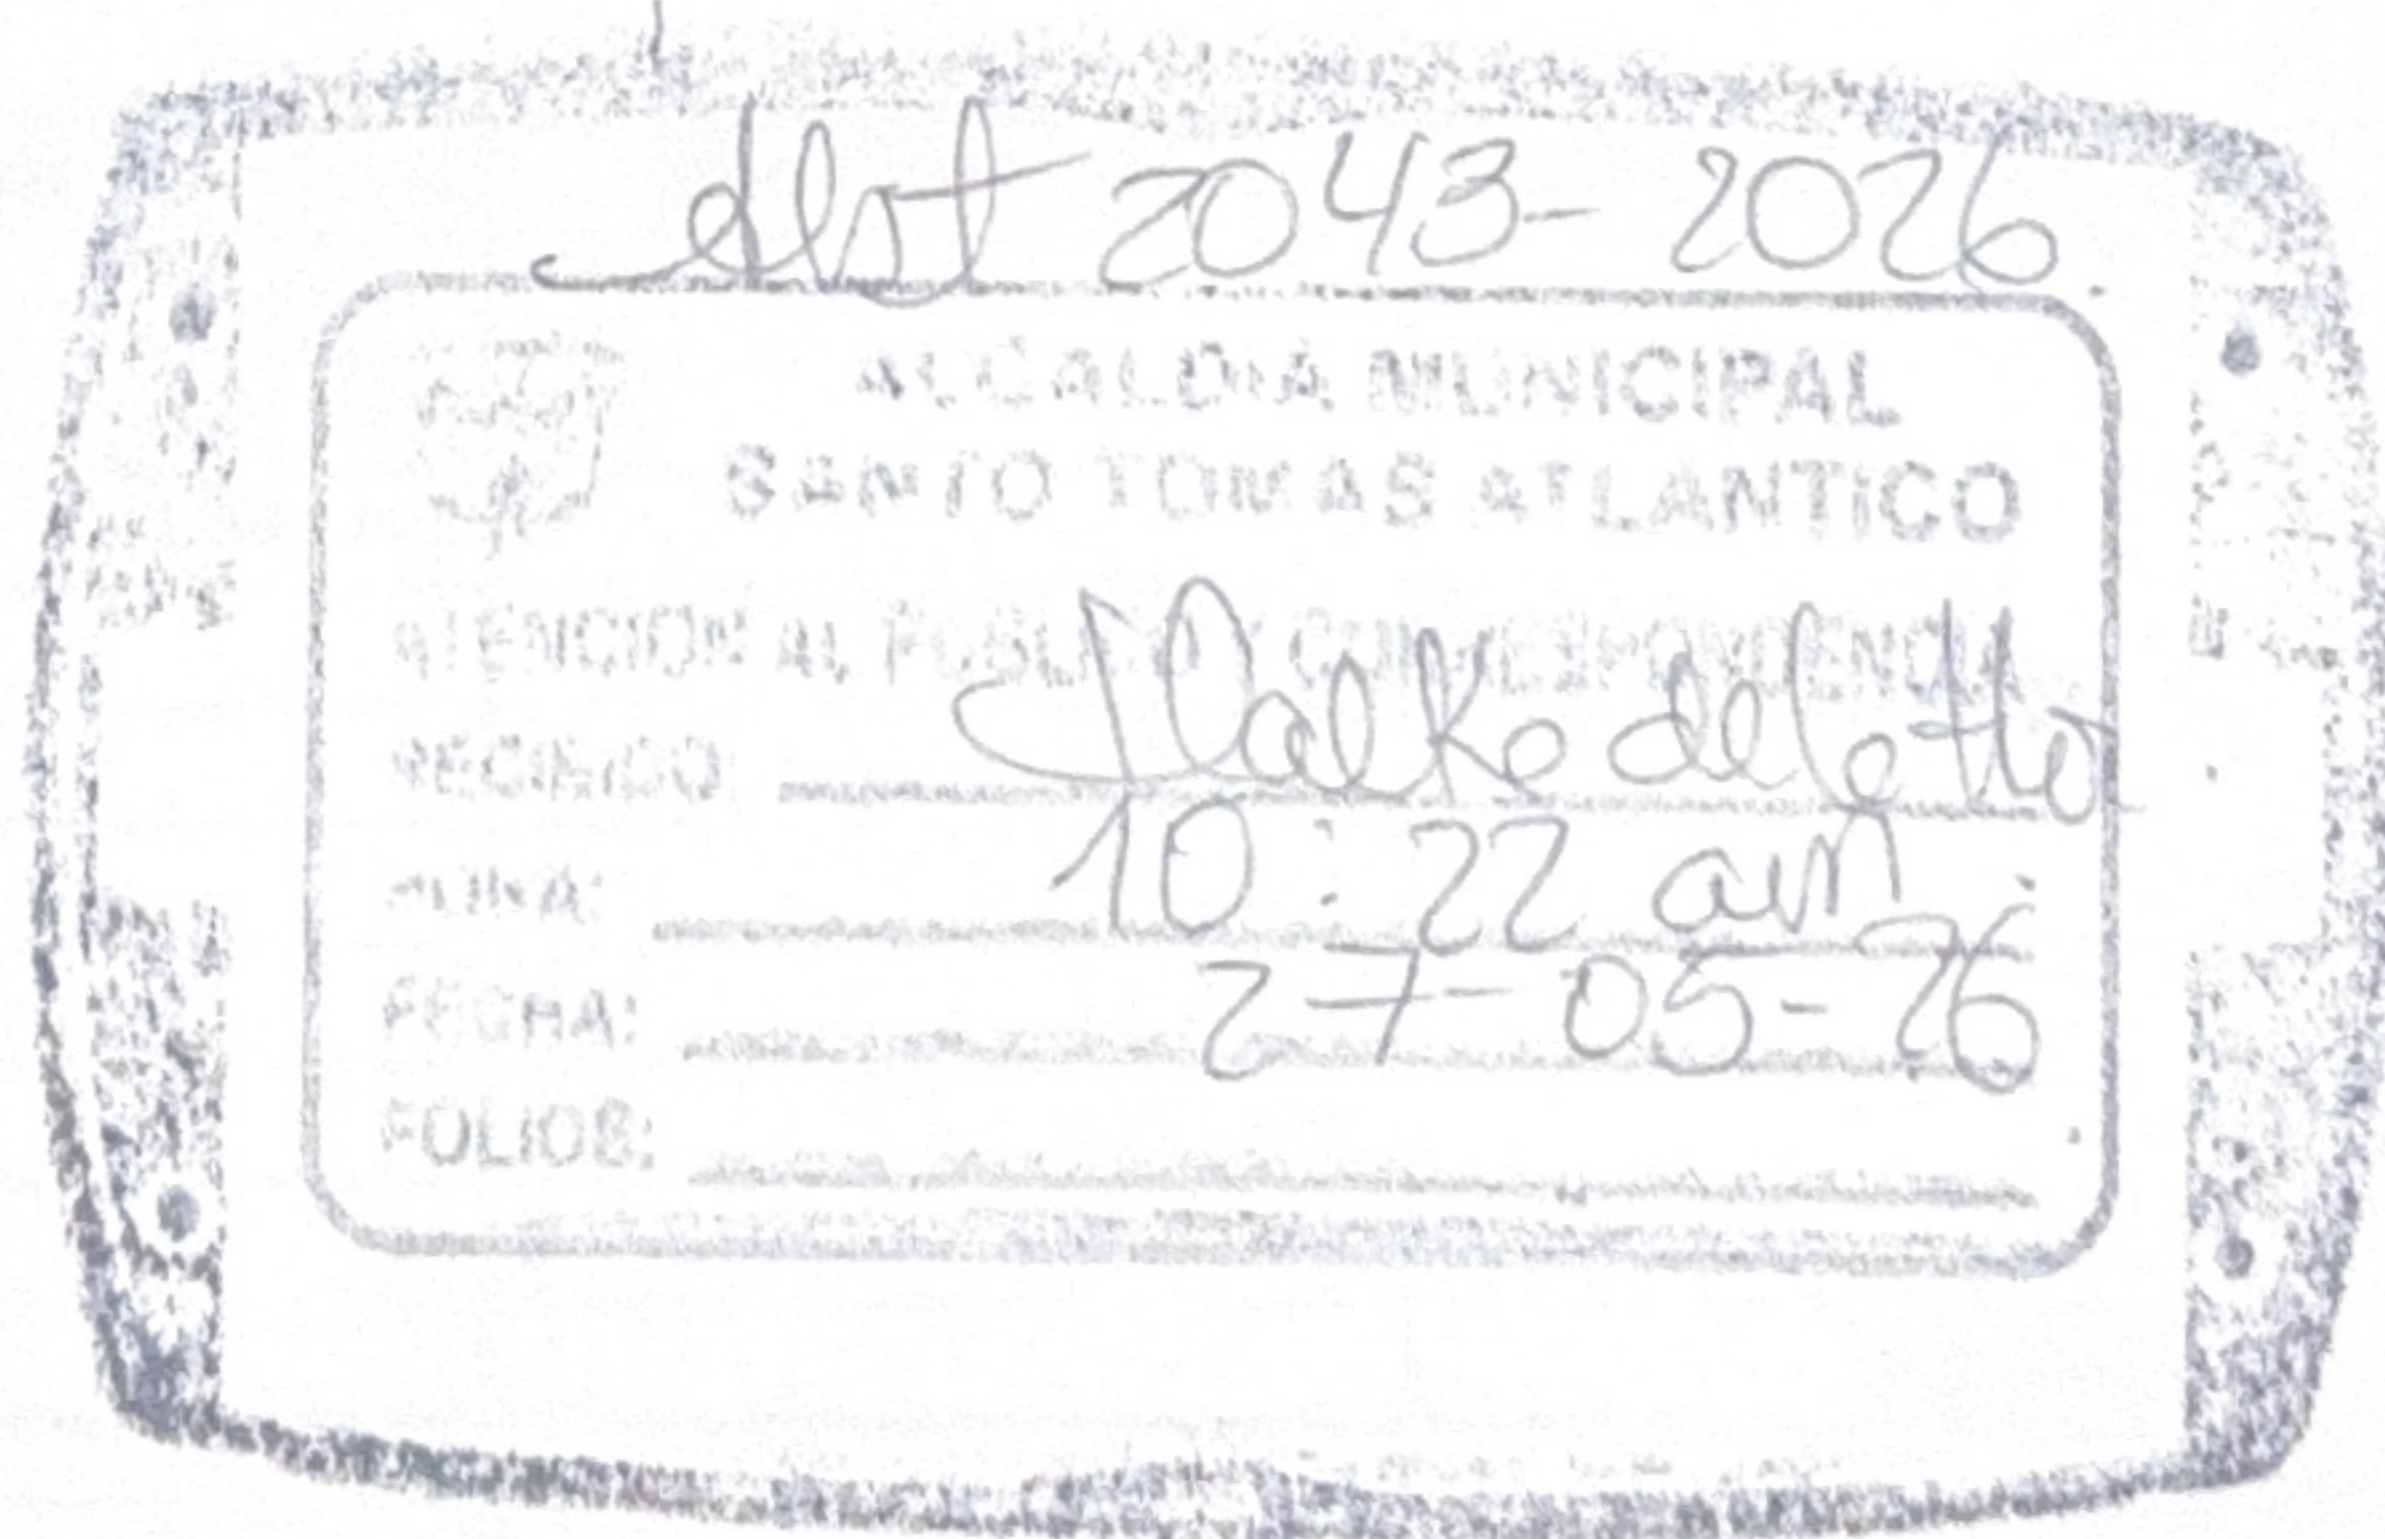 2043-2026
ALCALDIA MUNICIPAL
SANTO TOMAS ATLANTICO
ATENCION AL PUBLICO Y CORRESPONDENCIA
RECIBIDO
HORA: 10:22 am
FECHA: 27-05-26
FOLIOS: